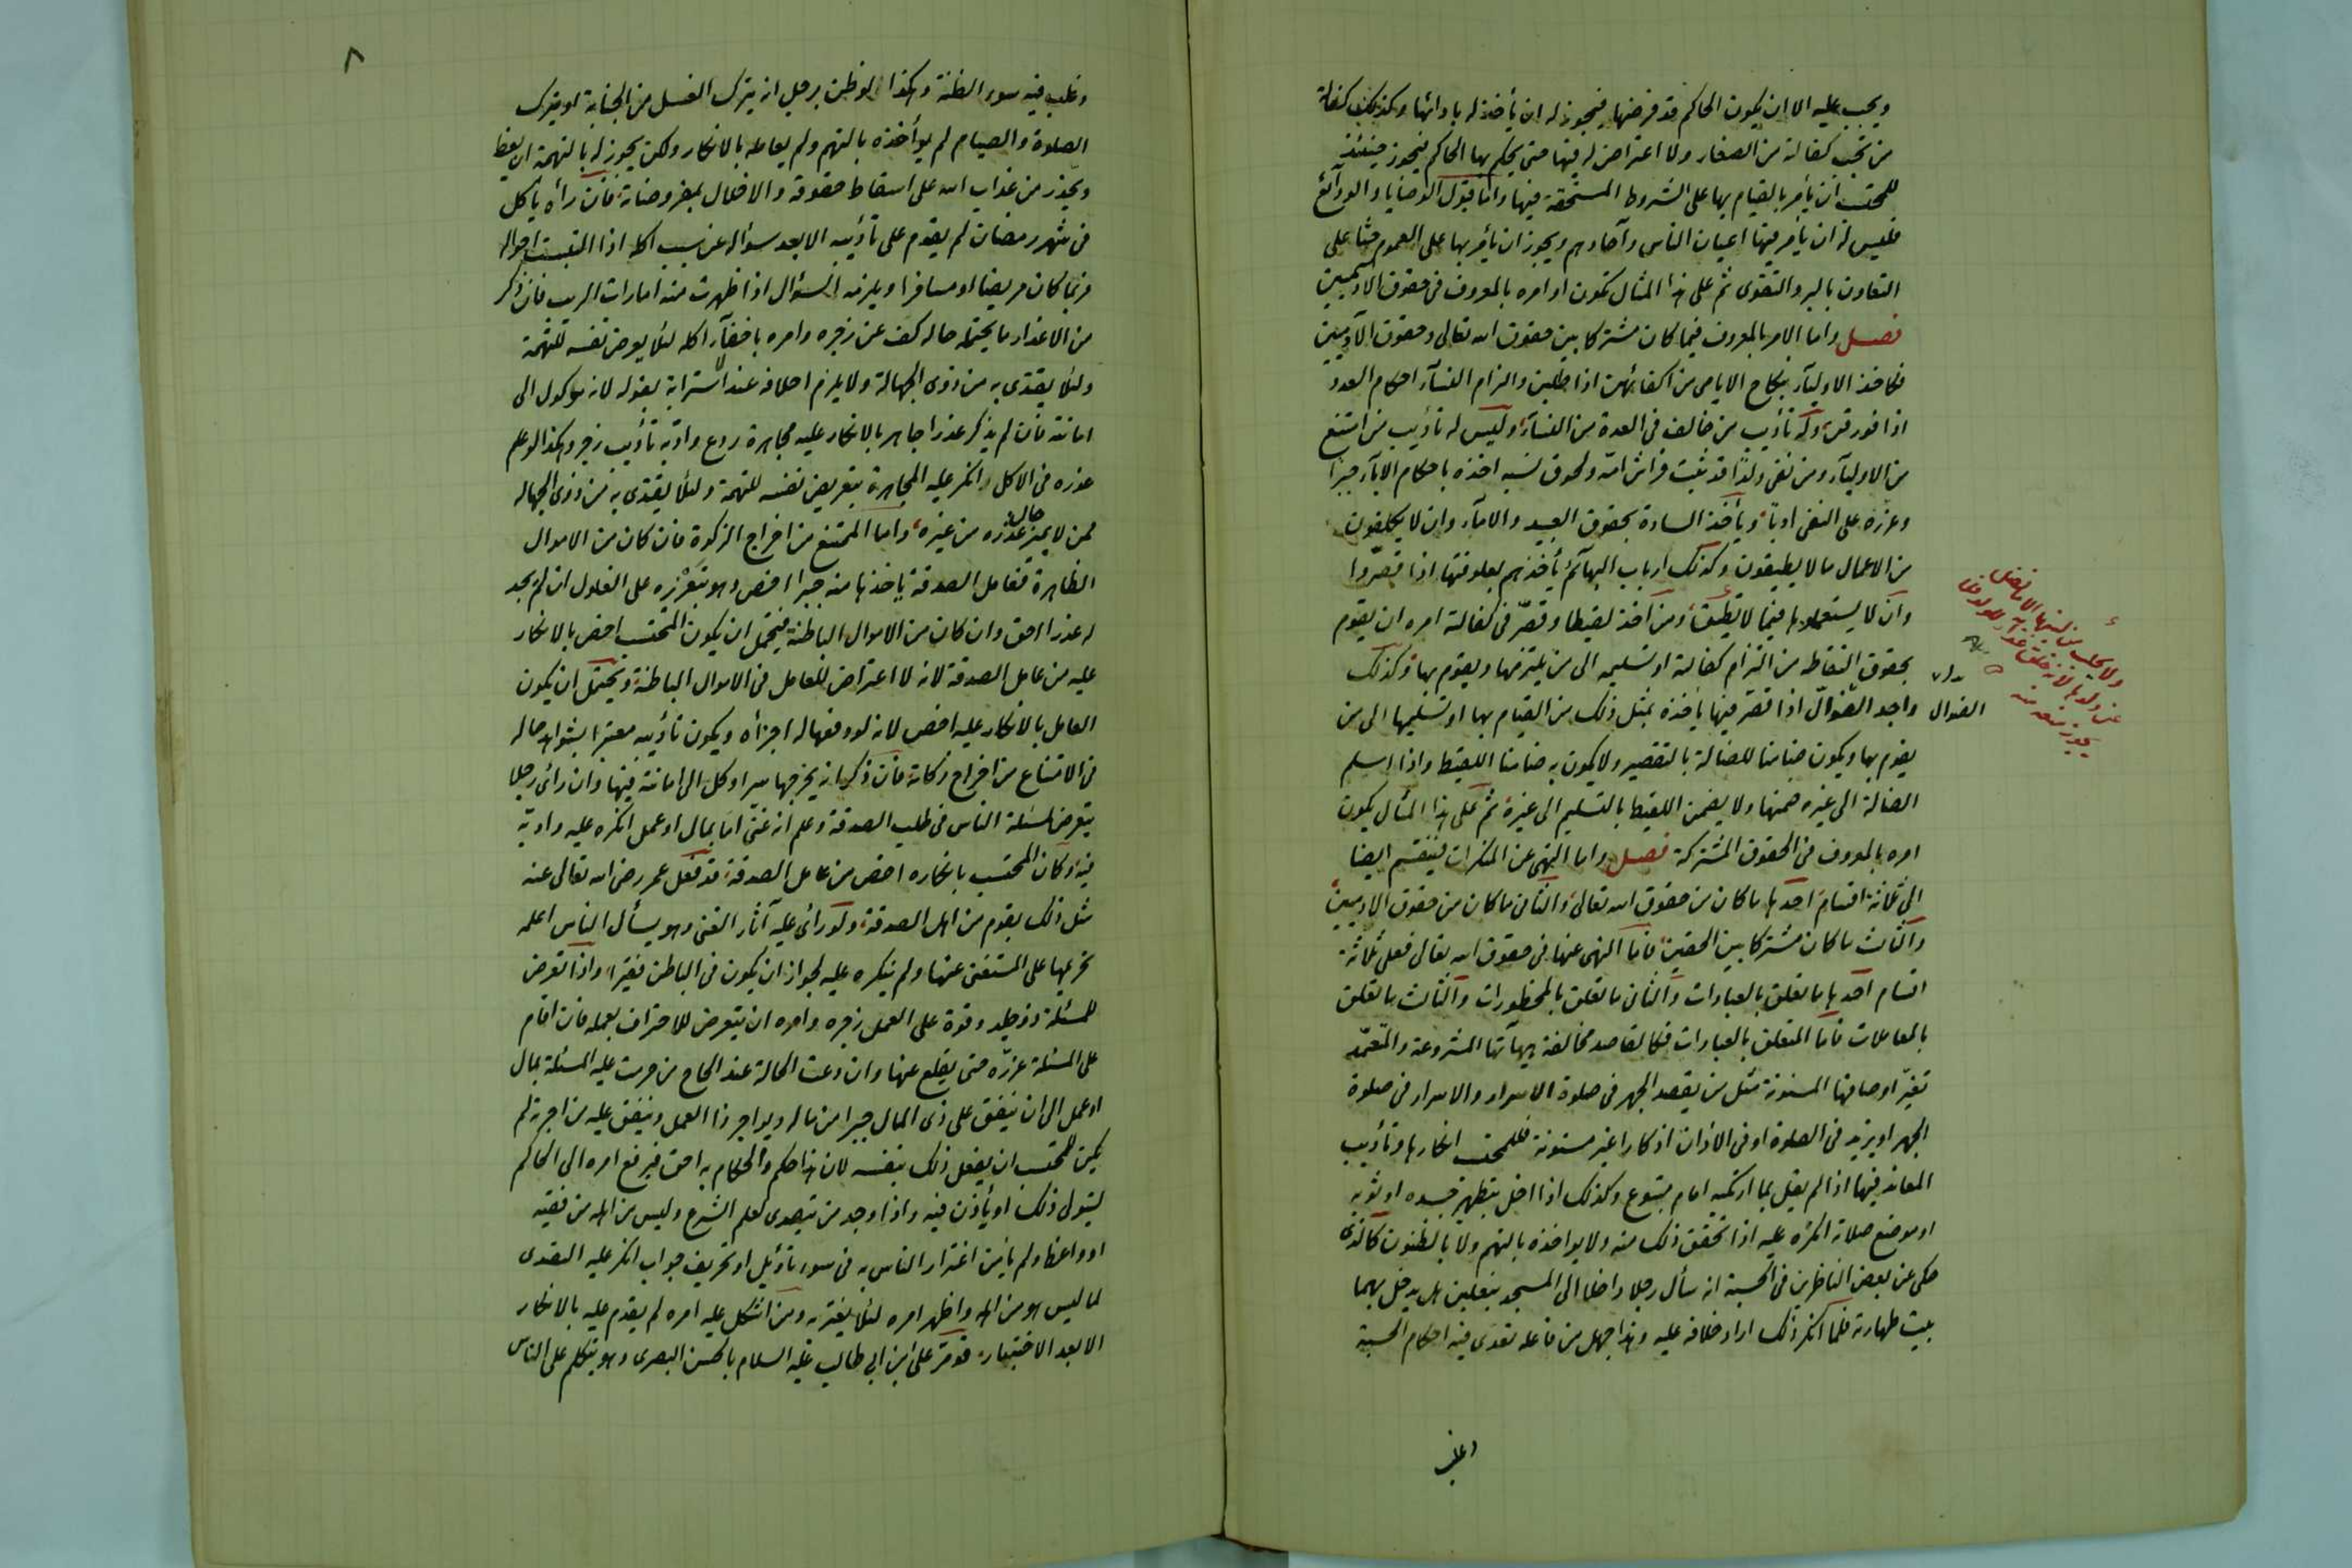 ويجب عليه الا ان يكون الحاكم قد فرضها فيجوز له ان يأخذ له بادائها وكذلك كفالة
من تجب كفالته من الصغار ولا اعتراض له فيها حتى يحكم بها الحاكم فيجوز حينئذ
للمحتسب ان يأمر بالقيام بها على الشروط المستحقة فيها واما قبول الوصايا والودائع
فليس له ان يأمر فيها اعيان الناس وآحادهم ويجوز ان يأمر بها على العموم حثا على
التعاون بالبر والتقوى ثم على هذا المثال تكون اوامره بالمعروف فى حقوق الآدميين
فصل واما الامر بالمعروف فيما كان مشتركا بين حقوق الله تعالى وحقوق الآدميين
فكاخذ الاولياء بنكاح الايامى من اكفائهن اذا طلبن والزام النساء احكام العدد
اذا فورقن وله تأديب من خالف فى العدة من النساء وليس له تأديب من امتنع
من الاولياء ومن نفى ولدا قد ثبت فراش امه ولحوق نسبه اخذه باحكام الآباء جبرا
وعزره على النفى ادبا ويأخذ السادة بحقوق العبيد والاماء وان لا يكلفون
من الاعمال ما لا يطيقون وكذلك ارباب البهائم يأخذهم بعلوفتها اذا قصروا
وان لا يستعملوها فيما لا تطيق ومن اخذ لقيطا وقصر فى كفالته امره ان يقوم
بحقوق التقاطه من التزام كفالته او تسليمه الى من يلتزمها ويقوم بها وكذلك
الضوال
واجد الضوال اذا قصر فيها يأخذه بمثل ذلك من القيام بها او تسليمها الى من
يقوم بها ويكون ضامنا للضالة بالتقصير ولا يكون به ضامنا اللقيط واذا اسلم
الضالة الى غيره ضمنها ولا يضمن اللقيط بالتسليم الى غيره ثم على هذا المثال يكون
امره بالمعروف فى الحقوق المشتركة فصل واما النهى عن المنكرات فينقسم ايضا
الى ثلاثة اقسام احدها ما كان من حقوق الله تعالى والثانى ما كان من حقوق الآدميين
والثالث ما كان مشتركا بين الحقين فاما النهى عنها فى حقوق الله تعالى فعلى ثلاثة
اقسام احدها ما تعلق بالعبادات والثانى ما تعلق بالمحظورات والثالث ما تعلق
بالمعاملات فاما المتعلق بالعبادات فكالقاصد مخالفة هيآتها المشروعة والمتعمد
تغير اوصافها المسنونة مثل من يقصد الجهر فى صلوة الاسرار والاسرار فى صلوة
الجهر او يزيد فى الصلوة او فى الاذان اذكارا غير مسنونة فللمحتسب انكارها وتأديب
المعاند فيها اذا لم يقل بما ارتكبه امام متبوع وكذلك اذا اخل بتطهير جسده او ثوبه
او موضع صلاته انكره عليه اذا تحقق ذلك منه ولا يواخذه بالتهم ولا بالظنون كالذى
حكى عن بعض الناظرين فى الحسبة انه سأل رجلا داخلا الى المسجد بنعلين هل يدخل بهما
بيت طهارته فلما انكر ذلك اراد حلافه عليه وهذا جهل من فاعله تعدى فيه احكام الحسبة
وغلب
٨
وغلب فيه سوء الظنة وهكذا لو ظن برجل انه يترك الغسل من الجنابة او يترك
الصلوة والصيام لم يوأخذه بالتهم ولم يعامله بالانكار ولكن يجوز له بالتهمة ان يعظ
ويحذر من عذاب الله على اسقاط حقوقه والاخلال بمفروضاته فان رأه يأكل
فى شهر رمضان لم يقدم على تأديبه الا بعد سؤاله عن سبب اكله اذا التبست احواله
فربما كان مريضا او مسافرا ويلزمه السؤال اذا ظهرت منه امارات الريب فان ذكر
من الاعذار ما يحتمله حاله كف عن زجره وامره باخفاء اكله لئلا يعرض نفسه للتهمة
ولئلا يقتدى به من ذوى الجهالة ولا يلزم احلافه عند استرابة بقوله لانه موكول الى
امانته فان لم يذكر عذرا جاهر بالانكار عليه مجاهرة ردع وادبه تأديب زجر وهكذا لو علم
عذره فى الاكل وانكر عليه المجاهرة بتعريض نفسه للتهمة ولئلا يقتدى به من ذوى الجهالة
ممن لا يميز حال عذره من غيره واما الممتنع من اخراج الزكوة فان كان من الاموال
الظاهرة فعامل الصدقة يأخذها منه جبرا اخص وهو بتعزيره على الغلول ان لم يجد
له عذرا احق وان كان من الاموال الباطنة فيحتمل ان يكون المحتسب اخص بالانكار
عليه من عامل الصدقة لانه لا اعتراض للعامل فى الاموال الباطنة ويحتمل ان يكون
العامل بالانكار عليه اخص لانه لو دفعها له اجزأه ويكون تأديبه معتبرا بشواهد حاله
فى الامتناع من اخراج زكاته فان ذكر انه يخرجها سرا وكل الى امانته فيها وان رأى رجلا
يتعرض لمسئلة الناس فى طلب الصدقة وعلم انه غنى اما بمال او عمل انكره عليه وادبه
فيه وكان المحتسب بانكاره اخص من عامل الصدقة قد فعل عمر رضى الله تعالى عنه
مثل ذلك بقوم من اهل الصدقة ولو رأى عليه آثار الغنى وهو يسأل الناس اعلمه
تحريمها على المستغنى عنها ولم ينكره عليه لجواز ان يكون فى الباطن فقيرا واذا تعرض
للمسئلة ذو جلد وقوة على العمل زجره وامره ان يتعرض للاحتراف بعمله فان اقام
على المسئلة عزره حتى يقلع عنها وان دعت الحالة عند الحاح من حرمت عليه المسئلة بمال
او عمل الى ان ينفق على ذى المال جبرا من ماله ويواجر ذا العمل وينفق عليه من اجرته لم
يكن للمحتسب ان يفعل ذلك بنفسه لان هذا حكم والحكام به احق فيرفع امره الى الحاكم
ليتولى ذلك او يأذن فيه واذا وجد من يتصدى لعلم الشرع وليس من اهله من فقيه
او واعظ ولم يأمن اغترار الناس به فى سوء تأويل او تحريف جواب انكر عليه التصدى
لما ليس هو من اهله واظهر امره لئلا يغتر به ومن اشكل عليه امره لم يقدم عليه بالانكار
الا بعد الاختبار قد مر على ابن ابى طالب عليه السلام بالحسن البصرى وهو يتكلم على الناس